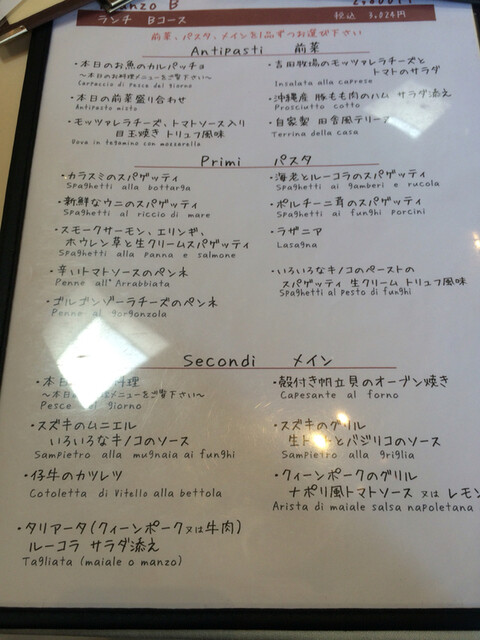 ランチ Bコース 税込 3,024円
前菜、パスタ、メインを1品ずつお選び下さい
Antipasti 前菜
・本日のお魚のカルパッチョ
〜本日のお料理メニューをご覧下さい〜
Carpaccio di Pesce del giorno
・本日の前菜盛り合わせ
Antipasto misto
・モッツァレラチーズ、トマトソース入り
目玉焼き トリュフ風味
Uova in tegamino con mozzarella
・吉田牧場のモッツァレラチーズと
トマトのサラダ
Insalata alla caprese
・沖縄産 豚もも肉のハム サラダ添え
Prosciutto cotto
・自家製 田舎風テリーヌ
Terrina della casa
Primi パスタ
・カラスミのスパゲッティ
Spaghetti alla bottarga
・新鮮なウニのスパゲッティ
Spaghetti al riccio di mare
・スモークサーモン、エリンギ、
ホウレン草と生クリームスパゲッティ
Spaghetti alla panna e salmone
・辛いトマトソースのペンネ
Penne all'Arrabbiata
・ゴルゴンゾーラチーズのペンネ
Penne al gorgonzola
・海老とルーコラのスパゲッティ
Spaghetti ai gamberi e rucola
・ポルチーニ茸のスパゲッティ
Spaghetti ai funghi porcini
・ラザニア
Lasagna
・いろいろなキノコのペーストの
スパゲッティ 生クリーム トリュフ風味
Spaghetti al pesto di funghi
Secondi メイン
・本日 料理
〜本日の メニューをご覧下さい〜
Pesce del giorno
・スズキのムニエル
いろいろなキノコのソース
Sampietro alla mugnaia ai funghi
・仔牛のカツレツ
Cotoletta di Vitello alla bettola
・タリアータ(クィーンポーク又は牛肉)
ルーコラ サラダ添え
Tagliata (maiale o manzo)
・殻付き帆立貝のオーブン焼き
Capesante al forno
・スズキのグリル
生トマトとバジリコのソース
Sampietro alla griglia
・クィーンポークのグリル
ナポリ風トマトソース 又は レモン
Arista di maiale salsa napoletana